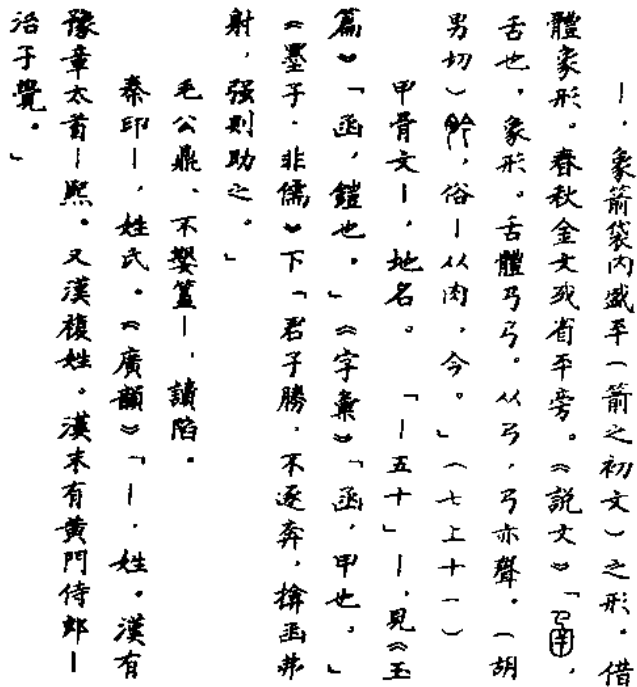 ｜，象箭袋内盛平（箭之初文）之形。借
體象形。春秋金文或省平旁。《說文》「，
舌也，象形。舌體𢎘𢎘。从𢎘，𢎘亦聲。（胡
男切）肣，俗｜从肉，今。」（七上十一）
甲骨文｜，地名。「｜五十」｜，見《玉
篇》「函，鎧也。」《字彙》「函，甲也。」
《墨子．非儒》下「君子勝，不逐奔，揜函弗
射，强則助之。」
毛公鼎、不嬰簋｜，讀陷。
秦印｜，姓氏。《廣韻》「｜，姓。漢有
豫章太首｜熙。又漢複姓。漢末有黄門侍郎｜
治子覺。」